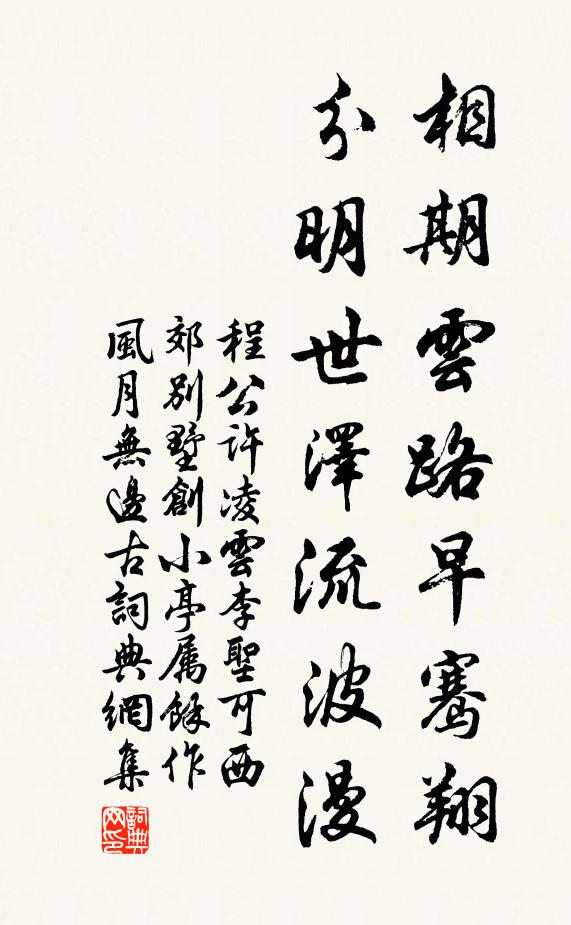 相期雲路早騫翔
分明世澤流波漫
程公許凌雲李聖可西
郊別墅創小亭属餘作
風月無邊古詞典網集
詞典
网印